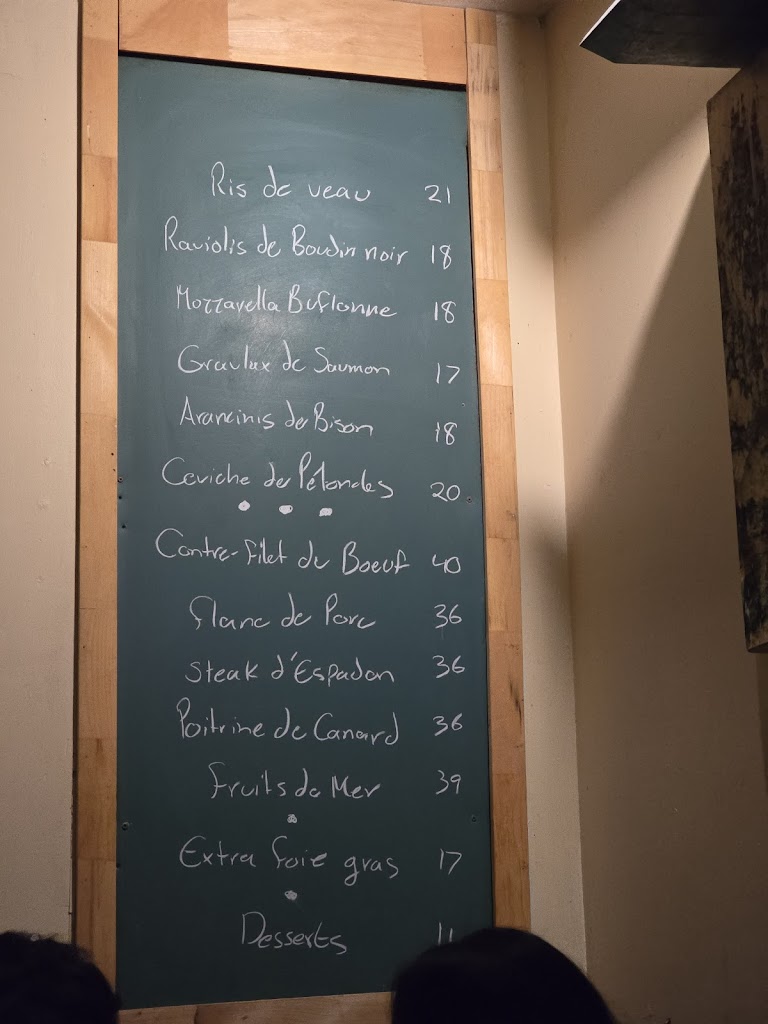 Ris de veau 21
Raviolis de Boudin noir 18
Mozzarella Buflonne 18
Gravlax de Saumon 17
Arancinis de Bison 18
Ceviche de Pétoncles 20
Contre-filet de Boeuf 40
Flanc de Porc 36
Steak d'Espadon 36
Poitrine de Canard 36
Fruits de Mer 39
Extra foie gras 17
Desserts 11